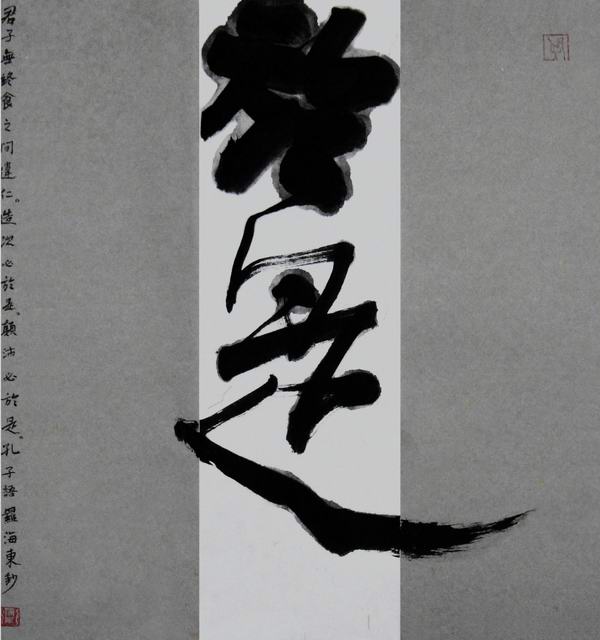 於是
君子無終食之間違仁。造次必於是、顛沛必於是。孔子語 羅海東鈔